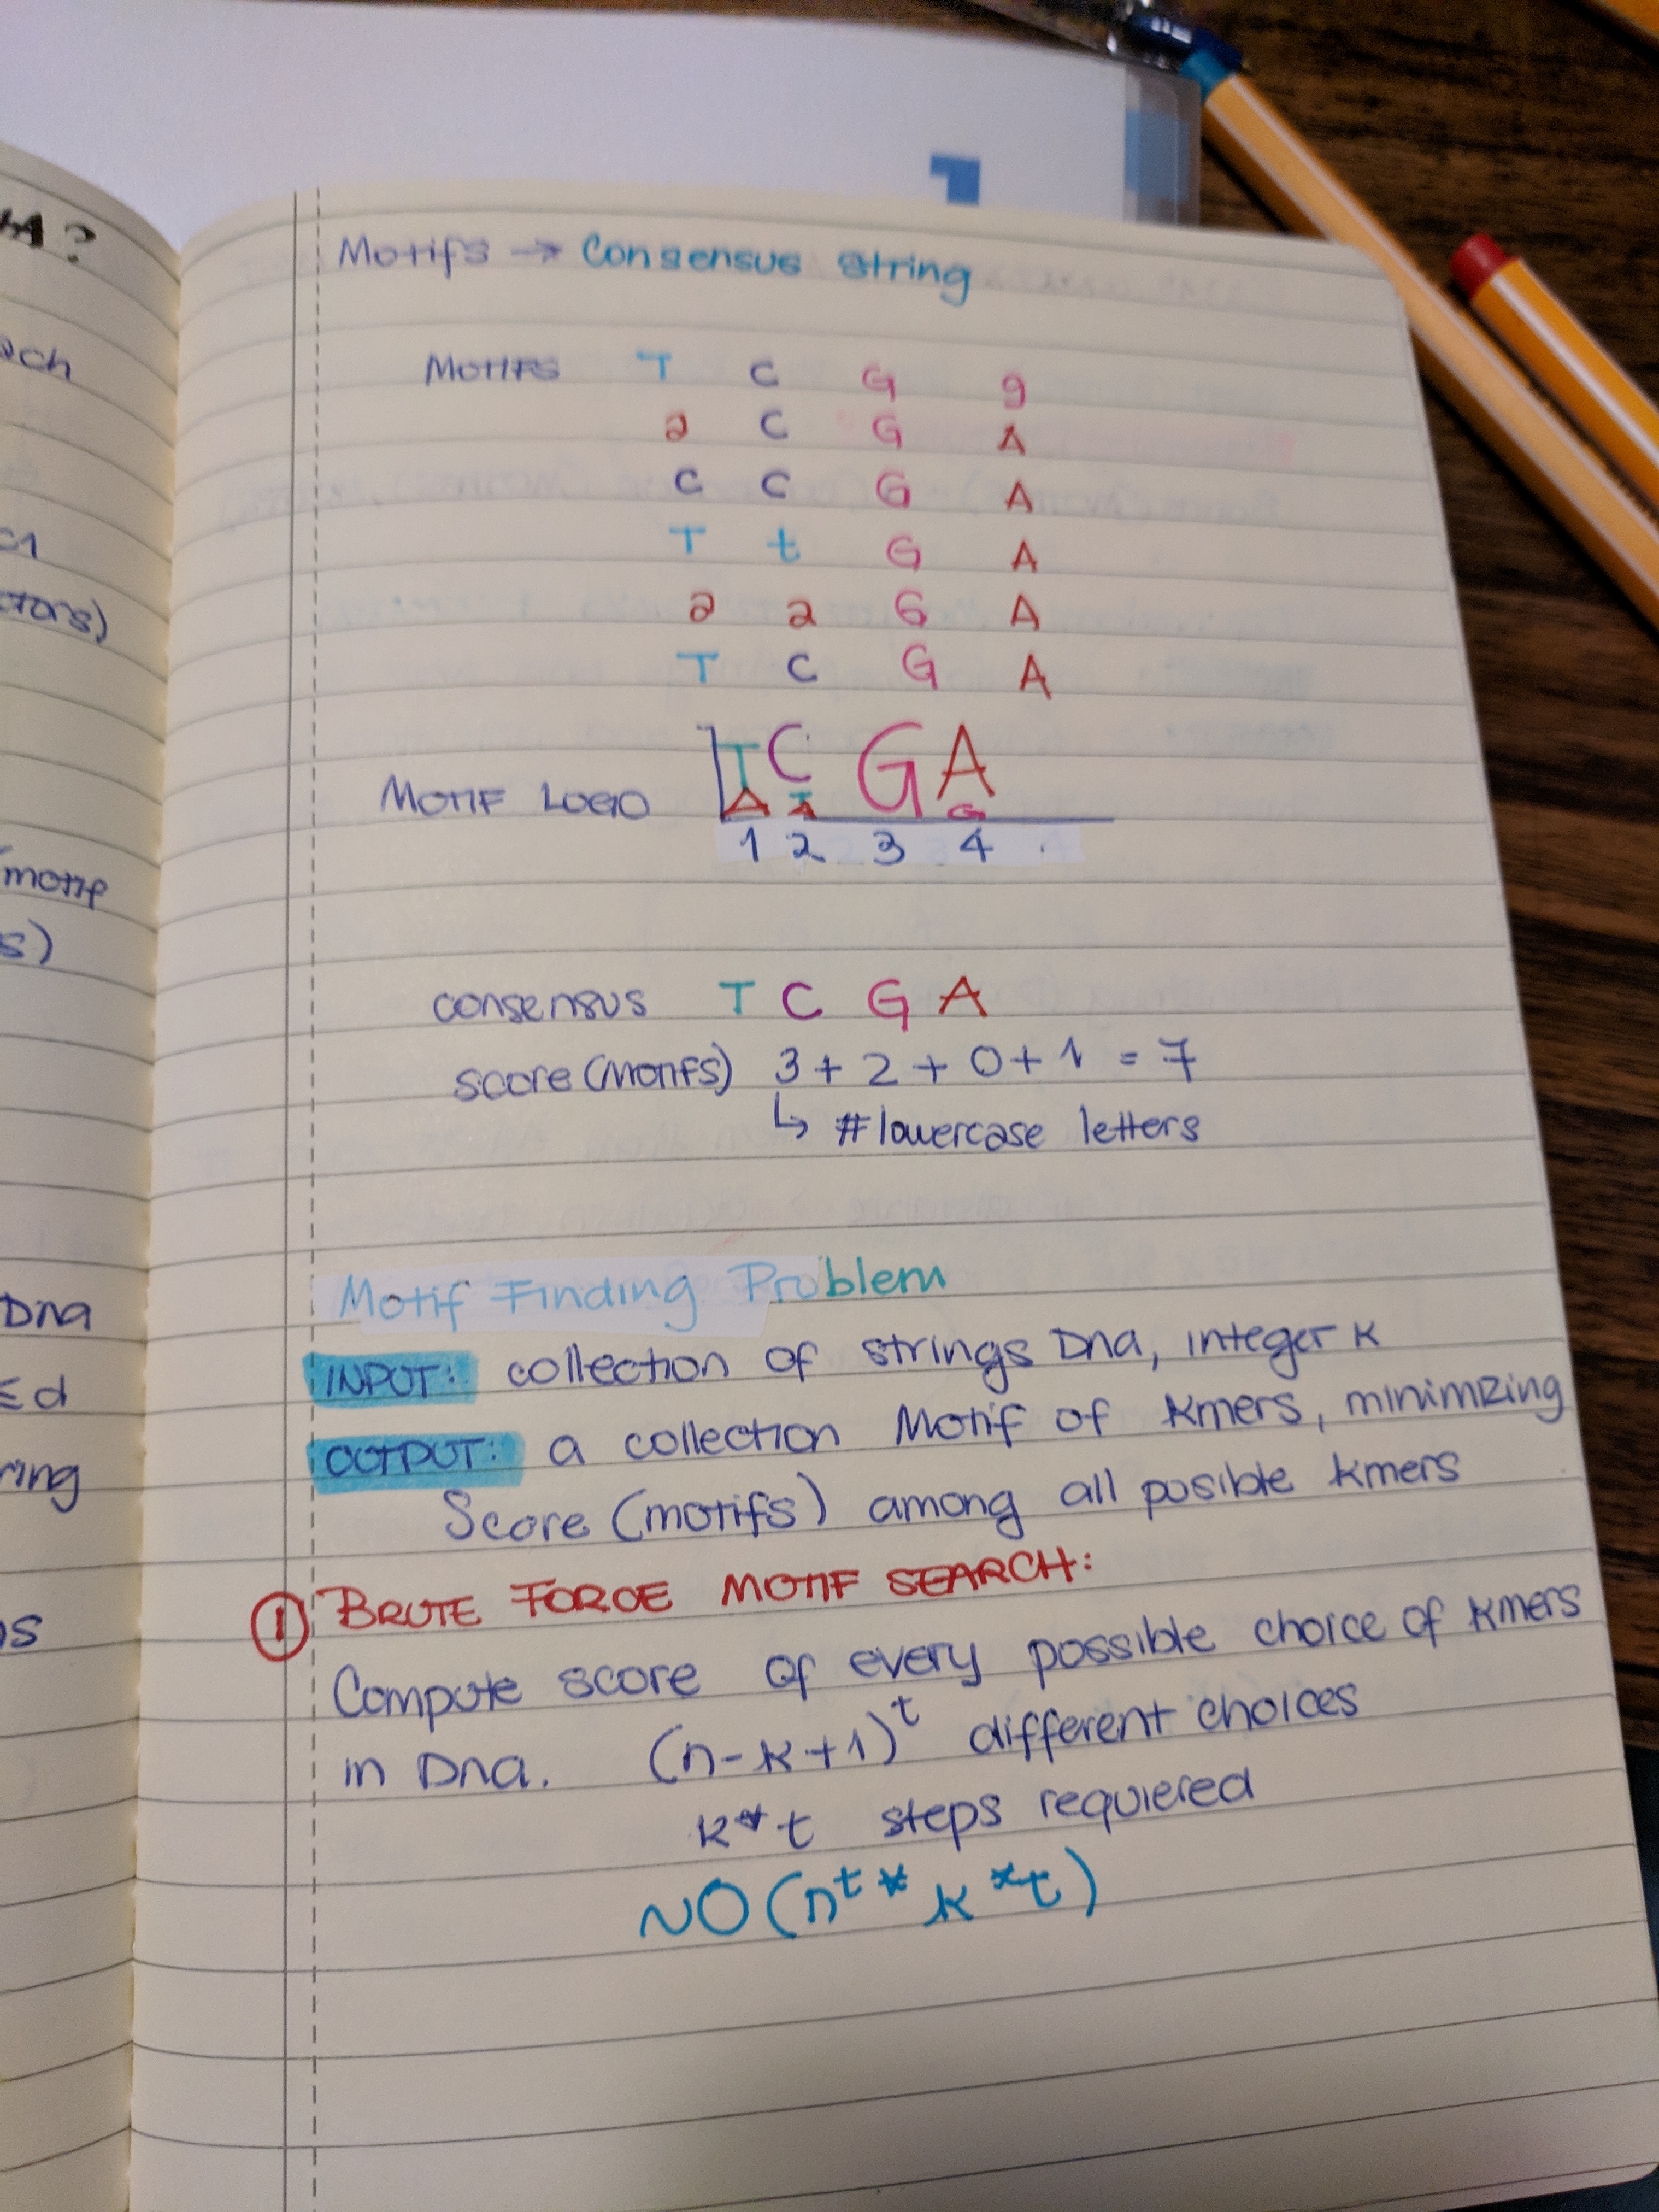 A?
ach
c1
ctors)
motif
s)
Dna
Ed
ring
os
Motifs → Consensus string
Motifs T C G g
a C G A
c C G A
T t G A
a a G A
T C G A
Motif Logo T A C T A G A G
1 2 3 4
consensus T C G A
score(Motifs) 3 + 2 + 0 + 1 = 7
↳ #lowercase letters
Motif Finding Problem
INPUT: collection of strings Dna, integer k
OUTPUT: a collection Motif of kmers, minimizing
Score (motifs) among all posible kmers
① BRUTE FORCE MOTIF SEARCH:
Compute score of every possible choice of kmers
in Dna. (n-k+1)^t different choices
k*t steps requiered
~O(n^t * k * t)